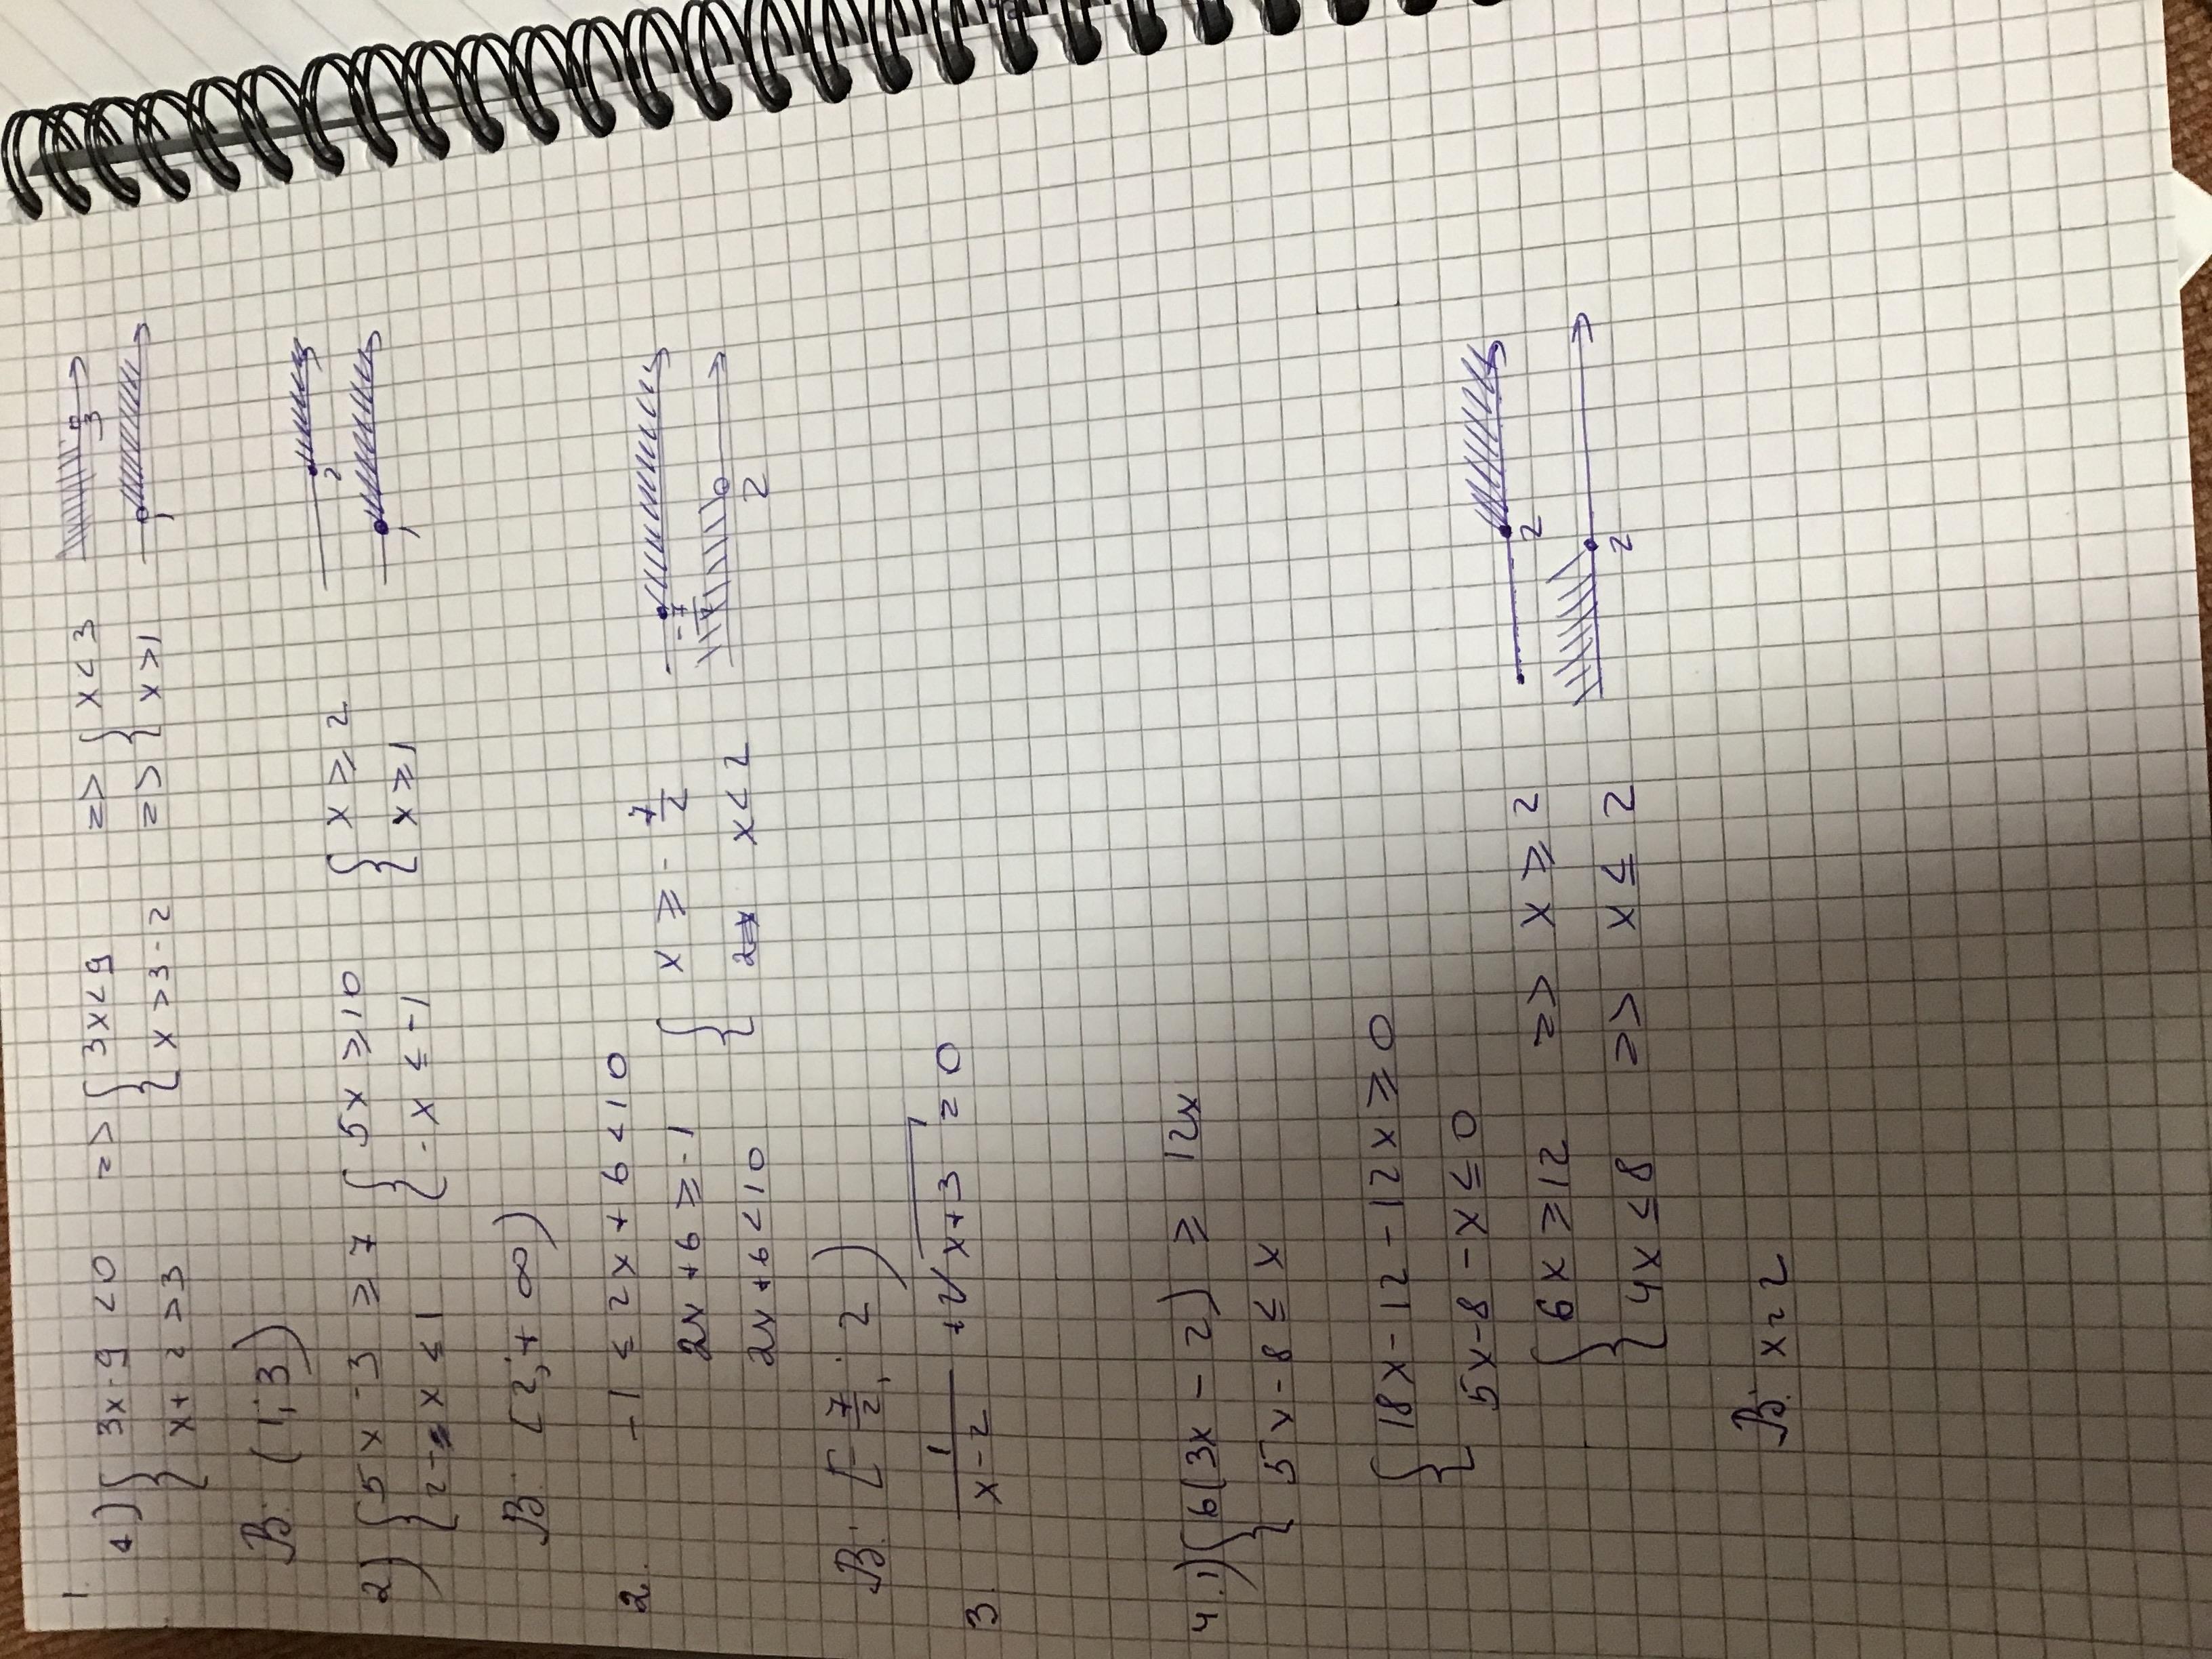 1.
1) { 3x-9<0 => { 3x<9 => { x<3
x+2>3 { x>3-2 => x>1
3
1
В: (1; 3)
2) { 5x-3 ≥ 7 { 5x ≥10 { x ≥ 2
2-x ≤ 1 -x ≤ -1 x ≥1
2
1
В: [2; +∞)
2. -1 ≤ 2x+6<10
2x+6 ≥ -1 { x ≥ - 7/2
2x+6<10 x<2
- 7/2
2
В: [- 7/2; 2)
3. 1/(x-2) + √(x+3) = 0
4. 1) { 6(3x-2) ≥ 12x
5x-8 ≤ x
{ 18x-12-12x ≥ 0
5x-8-x ≤ 0
{ 6x ≥ 12 => x ≥ 2
4x ≤ 8 => x ≤ 2
2
2
В: x=2